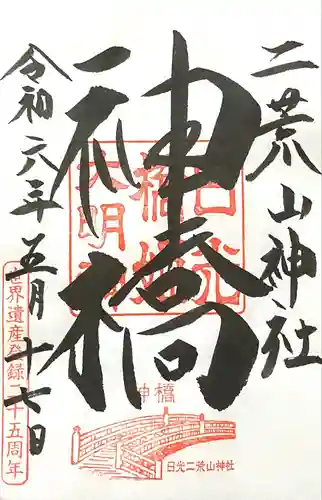 二荒山神社
神橋
令和六年五月十七日
日光
橋姫
大明神
世界遺産登録二十五周年
神橋
日光二荒山神社